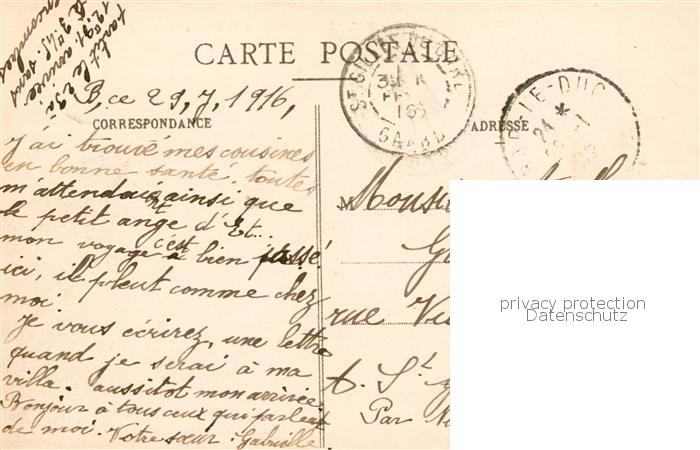 CARTE POSTALE
B, ce 29, 7, 1916,
CORRESPONDANCE
ADRESSE
J'ai trouvé mes cousines
en bonne santé. toutes
m'attendait ainsi que
le petit ange d'Et...
mon voyage c'est bien passé
ici, il pleut comme chez
moi
Je vous écrirez, une lettre
quand je serai à ma
villa. aussitot mon arrivée
Bonjour à tous ceux qui parlent
de moi. Votre sœur : Gabrielle
M
rue
A. St
Par
GARD
LE-DUC
privacy protection
Datenschutz